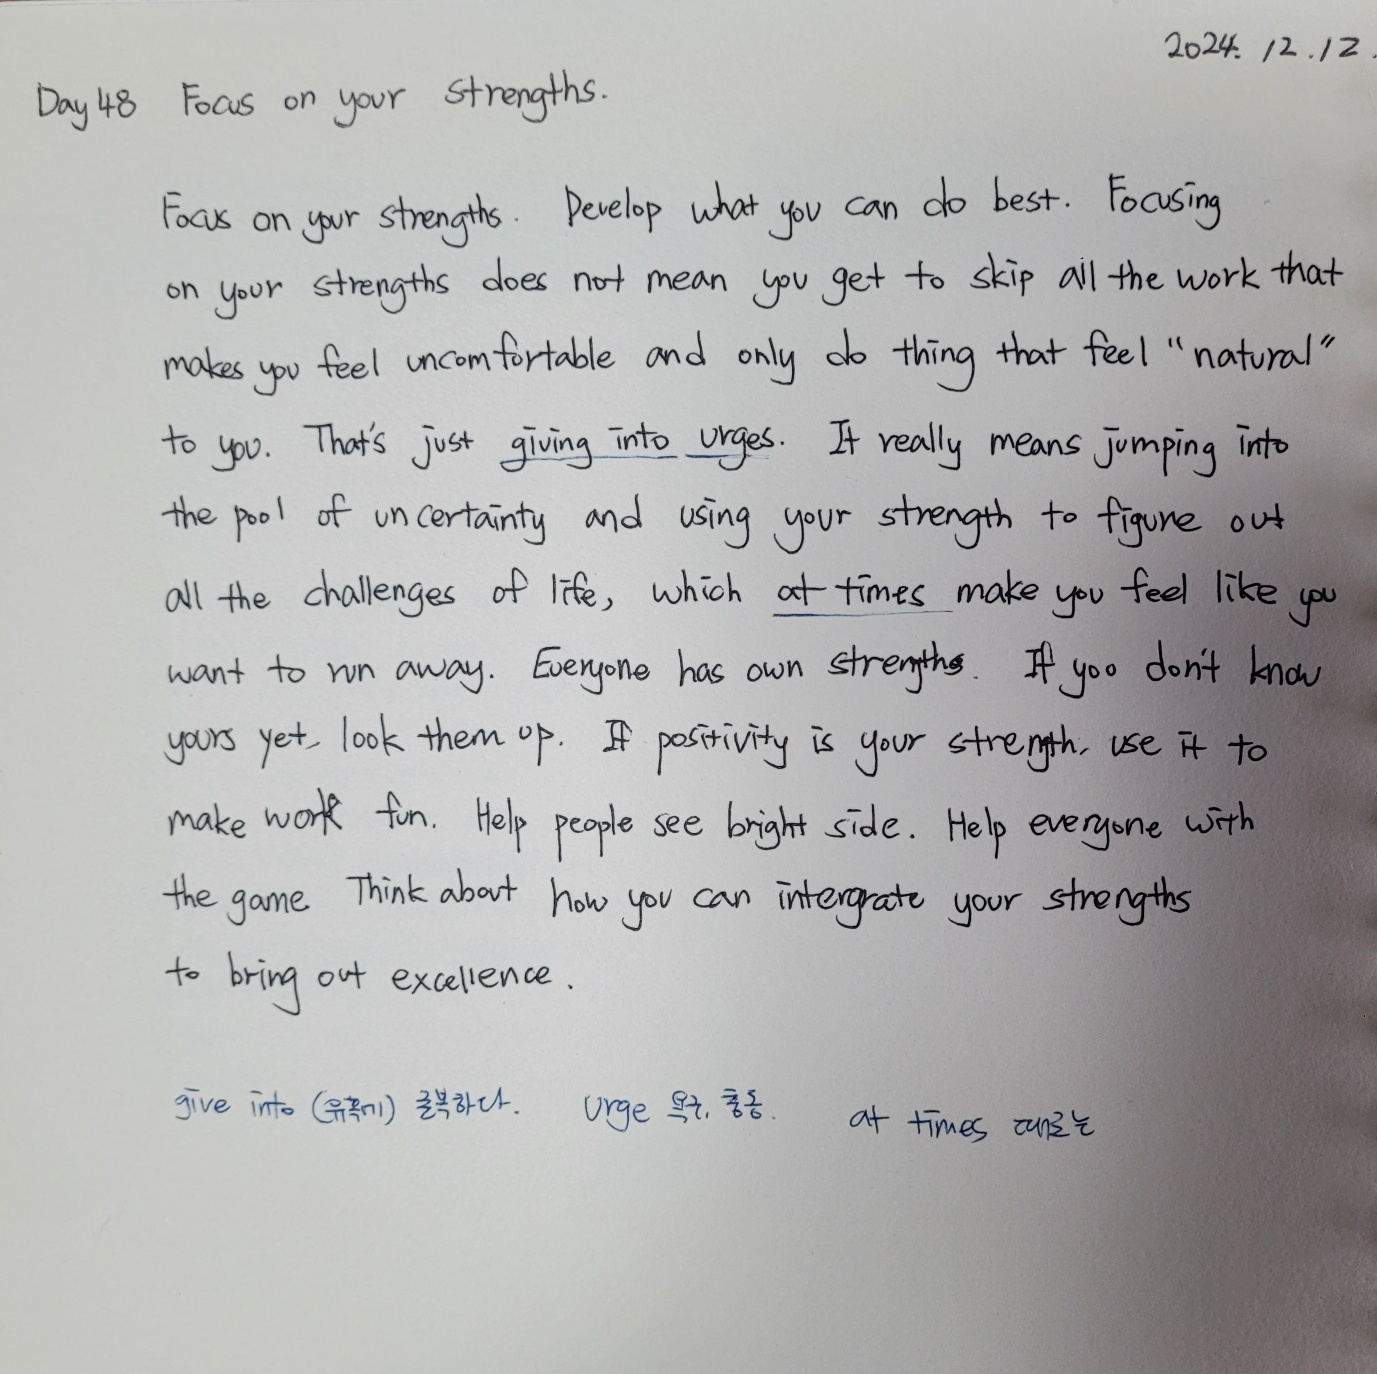 2024. 12.12.
Day 48 Focus on your strengths.
Focus on your strengths. Develop what you can do best. Focusing
on your strengths does not mean you get to skip all the work that
makes you feel uncomfortable and only do thing that feel "natural"
to you. That's just giving into urges. It really means jumping into
the pool of uncertainty and using your strength to figure out
all the challenges of life, which at times make you feel like you
want to run away. Everyone has own strengths. If yoo don't know
yours yet, look them up. If positivity is your strength, use it to
make work fun. Help people see bright side. Help everyone with
the game. Think about how you can intergrate your strengths
to bring out excellence.
give into (유혹에) 굴복하다. urge 욕구, 충동. at times 때로는